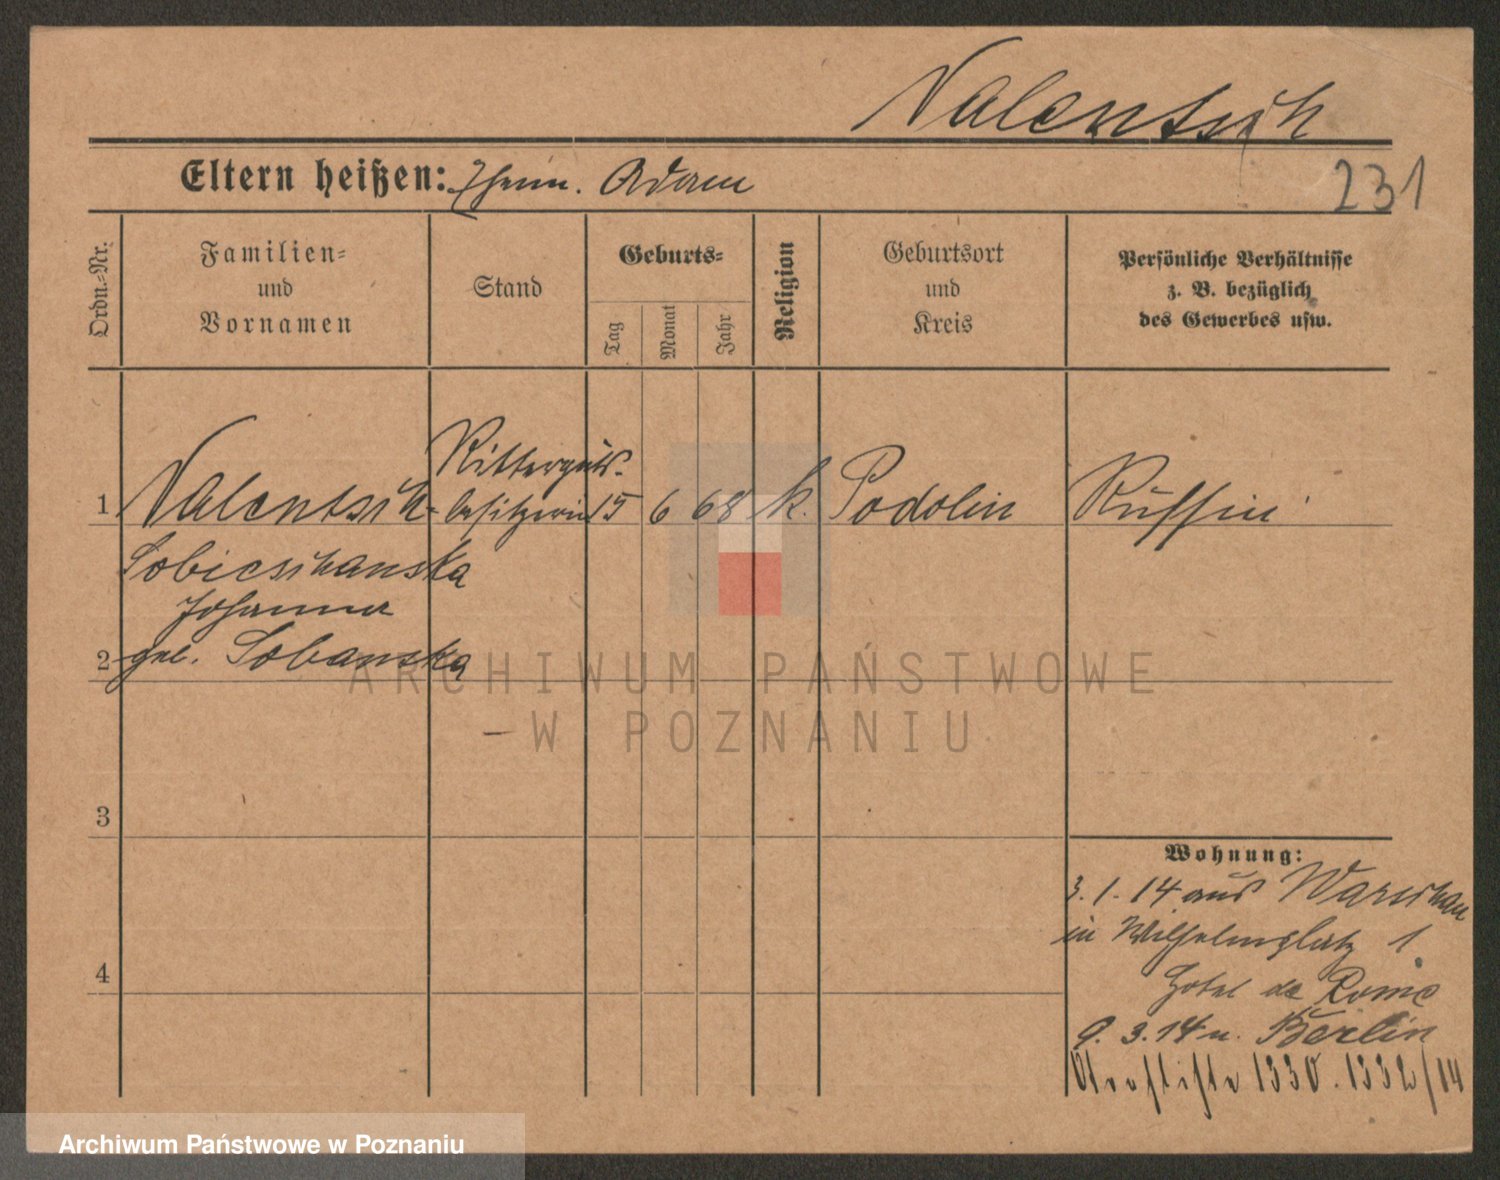 Valentsik
Eltern heißen: Adam
231
Ordn.-Nr.
Familien-
und
Vornamen
Stand
Geburts-
Tag
Monat
Jahr
Religion
Geburtsort
und
Kreis
Persönliche Verhältnisse
z. B. bezüglich
des Gewerbes usw.
Ritterguts-
1 Valentsik- besitzerin 15 6 68 k. Podolin
Sobiesikanska
Johanna
2 geb. Sobanska
3
4
Wohnung:
3.1.14 aus Warschau
in Wilhelmplatz 1
Hotel de Rome
9.3.14 n. Berlin
1330.1332/14
ARCHIWUM PAŃSTWOWE
W POZNANIU
Archiwum Państwowe w Poznaniu